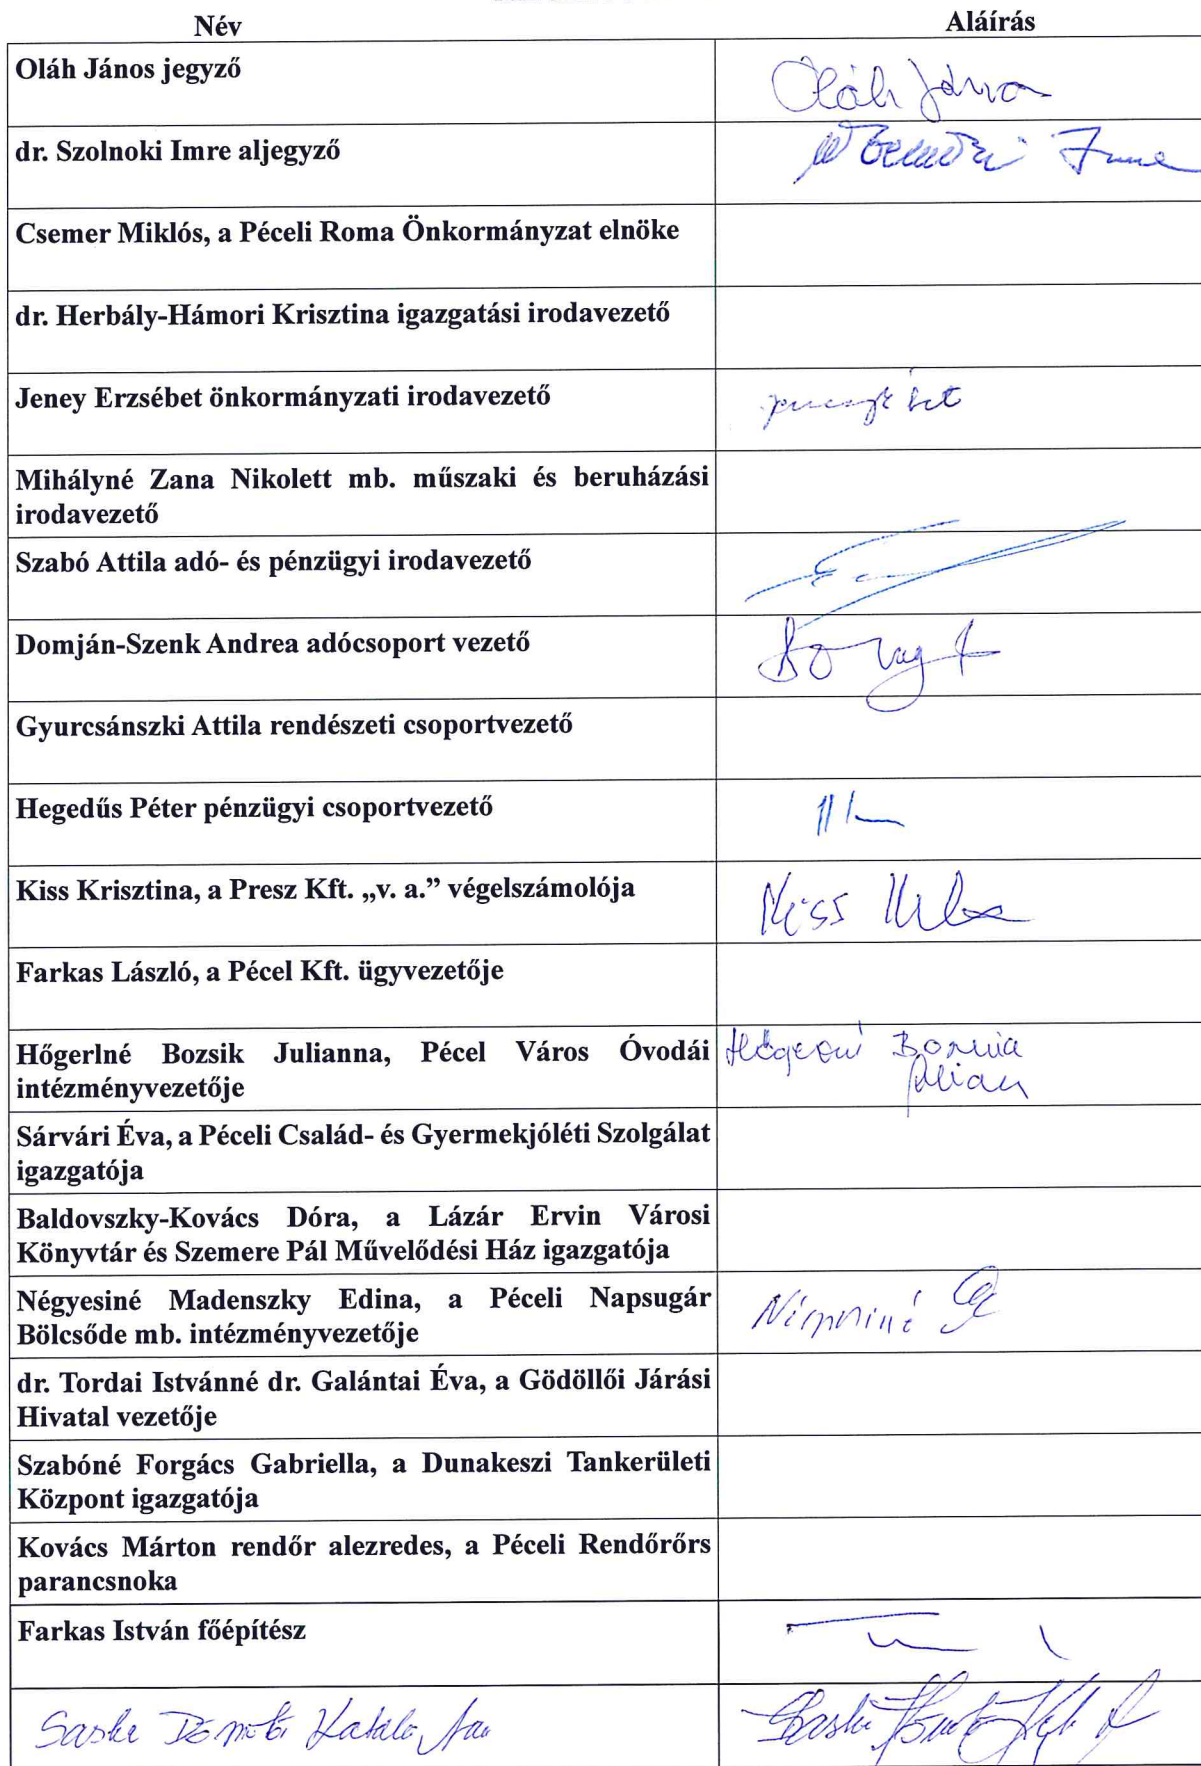 Név Aláírás
Oláh János jegyző
Oláh János
dr. Szolnoki Imre aljegyző
Imre
Csemer Miklós, a Péceli Roma Önkormányzat elnöke
dr. Herbály-Hámori Krisztina igazgatási irodavezető
Jeney Erzsébet önkormányzati irodavezető
Mihályné Zana Nikolett mb. műszaki és beruházási
irodavezető
Szabó Attila adó- és pénzügyi irodavezető
Domján-Szenk Andrea adócsoport vezető
Gyurcsánszki Attila rendészeti csoportvezető
Hegedűs Péter pénzügyi csoportvezető
Kiss Krisztina, a Presz Kft. „v. a.” végelszámolója
Kiss
Farkas László, a Pécel Kft. ügyvezetője
Hőgerlné Bozsik Julianna, Pécel Város Óvodái
intézményvezetője
Sárvári Éva, a Péceli Család- és Gyermekjóléti Szolgálat
igazgatója
Baldovszky-Kovács Dóra, a Lázár Ervin Városi
Könyvtár és Szemere Pál Művelődési Ház igazgatója
Négyesiné Madenszky Edina, a Péceli Napsugár
Bölcsőde mb. intézményvezetője
dr. Tordai Istvánné dr. Galántai Éva, a Gödöllői Járási
Hivatal vezetője
Szabóné Forgács Gabriella, a Dunakeszi Tankerületi
Központ igazgatója
Kovács Márton rendőr alezredes, a Péceli Rendőrőrs
parancsnoka
Farkas István főépítész